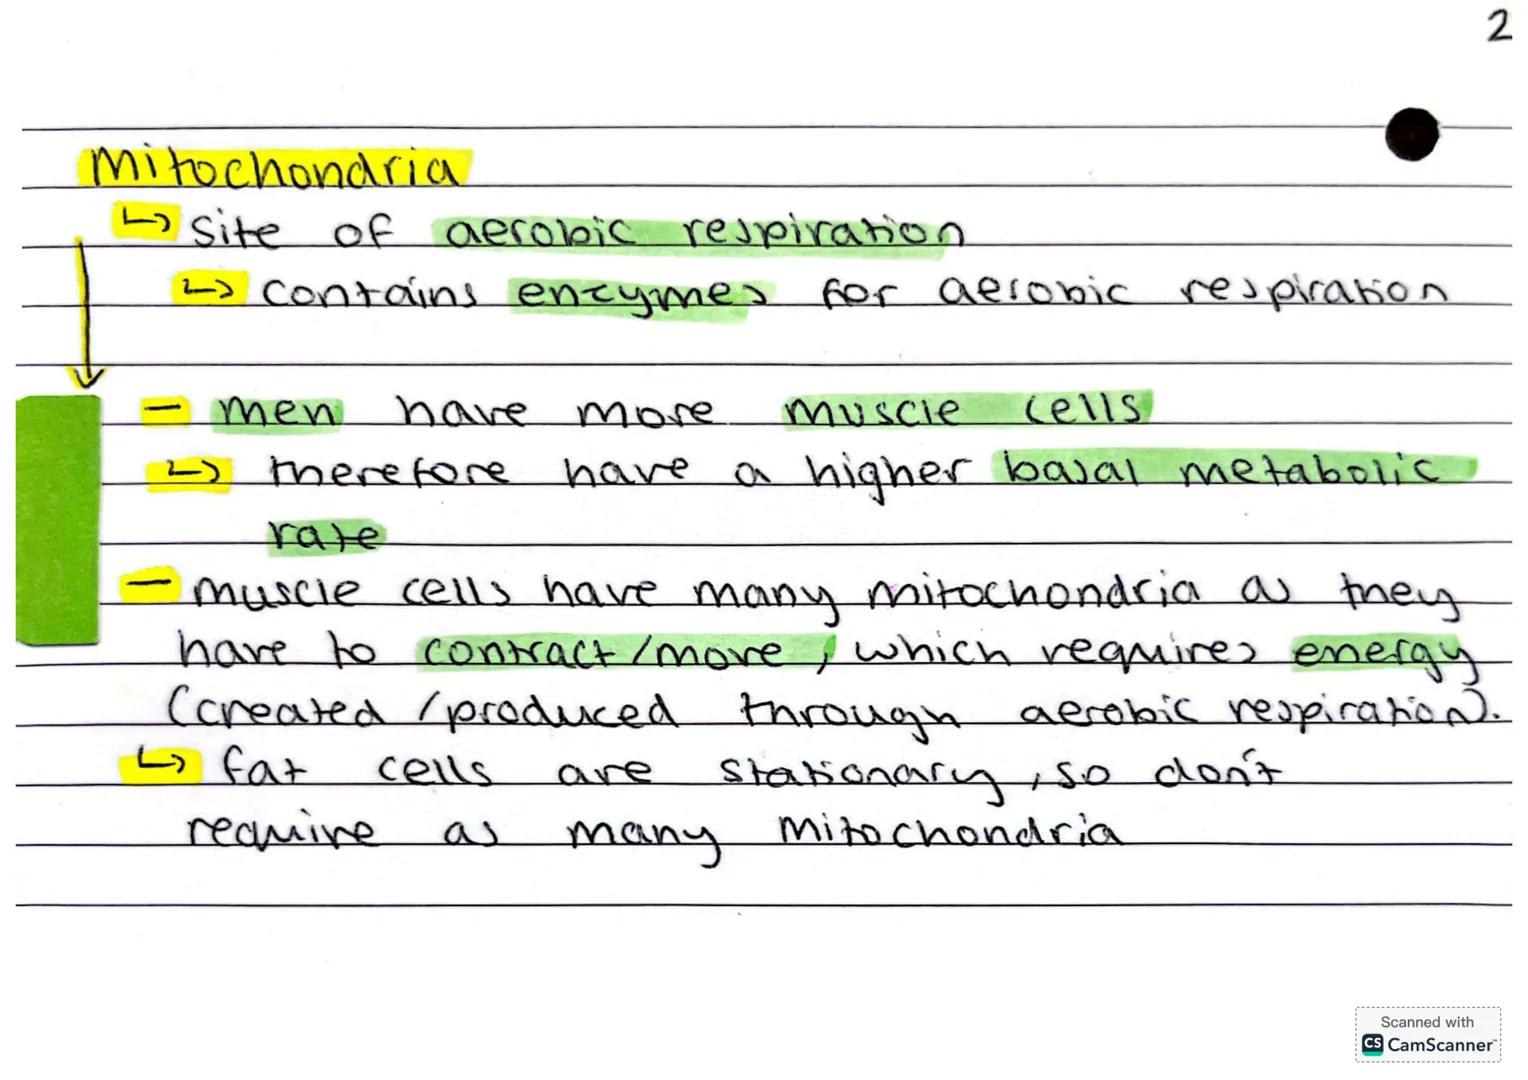 2
Mitochondria
↳ site of aerobic respiration
↳ contains enzymes for aerobic respiration
- men have more muscle cells
↳ therefore have a higher basal metabolic
rate
- muscle cells have many mitochondria as they
have to contract/move, which requires energy
(created/produced through aerobic respiration).
↳ fat cells are stationary, so don't
require as many mitochondria
Scanned with
CS CamScanner™